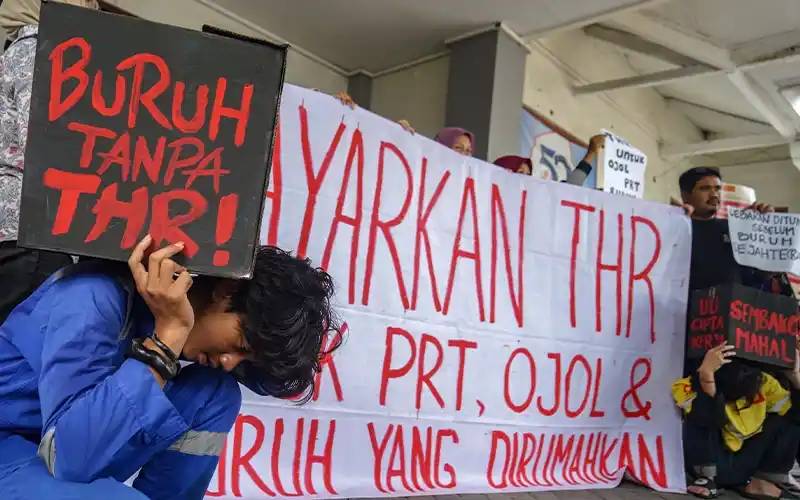 BURUH
TANPA
THR!
AYARKAN THR
K PRT, OJOL &
BURUH YANG DIRUMAHKAN
UNTUK
OJOL
PRT
LEBARAN DITUN
SEBELUM
BURUH
SEJAHTERA
UU
CIPTA
KERJA
SEMBAKO
MAHAL